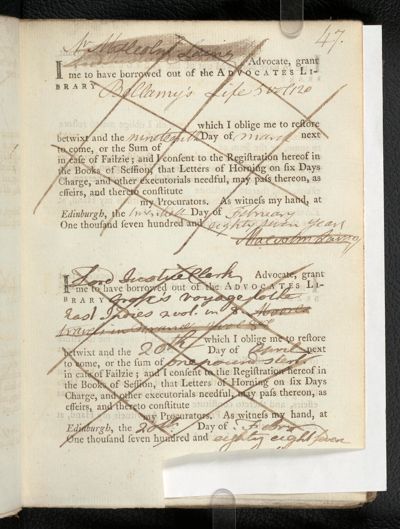 47.
Mr Malcolm Laing
I Advocate, grant
me to have borrowed out of the ADVOCATES LI-
BRARY Bellamy's Life 5 vol 120
which I oblige me to restore
betwixt and the nineteenth Day of March next
to come, or the Sum of
in case of Failzie; and I consent to the Registration hereof in
the Books of Session, that Letters of Horning on six Days
Charge, and other executorials needful, may pass thereon, as
effeirs, and thereto constitute
my Procurators. As witness my hand, at
Edinburgh, the Day of February
One thousand seven hundred and eighty seven years
Malcolm Laing
I Lord Justice Clerk Advocate, grant
me to have borrowed out of the ADVOCATES LI-
BRARY Grose's voyage to the
East Indies 2 vol. in 8
which I oblige me to restore
betwixt and the 20th Day of April next
to come, or the sum of one pound sterl
in case of Failzie; and I consent to the Registration hereof in
the Books of Session, that Letters of Horning on six Days
Charge, and other executorials needful, may pass thereon, as
effeirs, and thereto constitute
my Procurators. As witness my hand, at
Edinburgh, the 20th Day of Febry
One thousand seven hundred and eighty eight seven